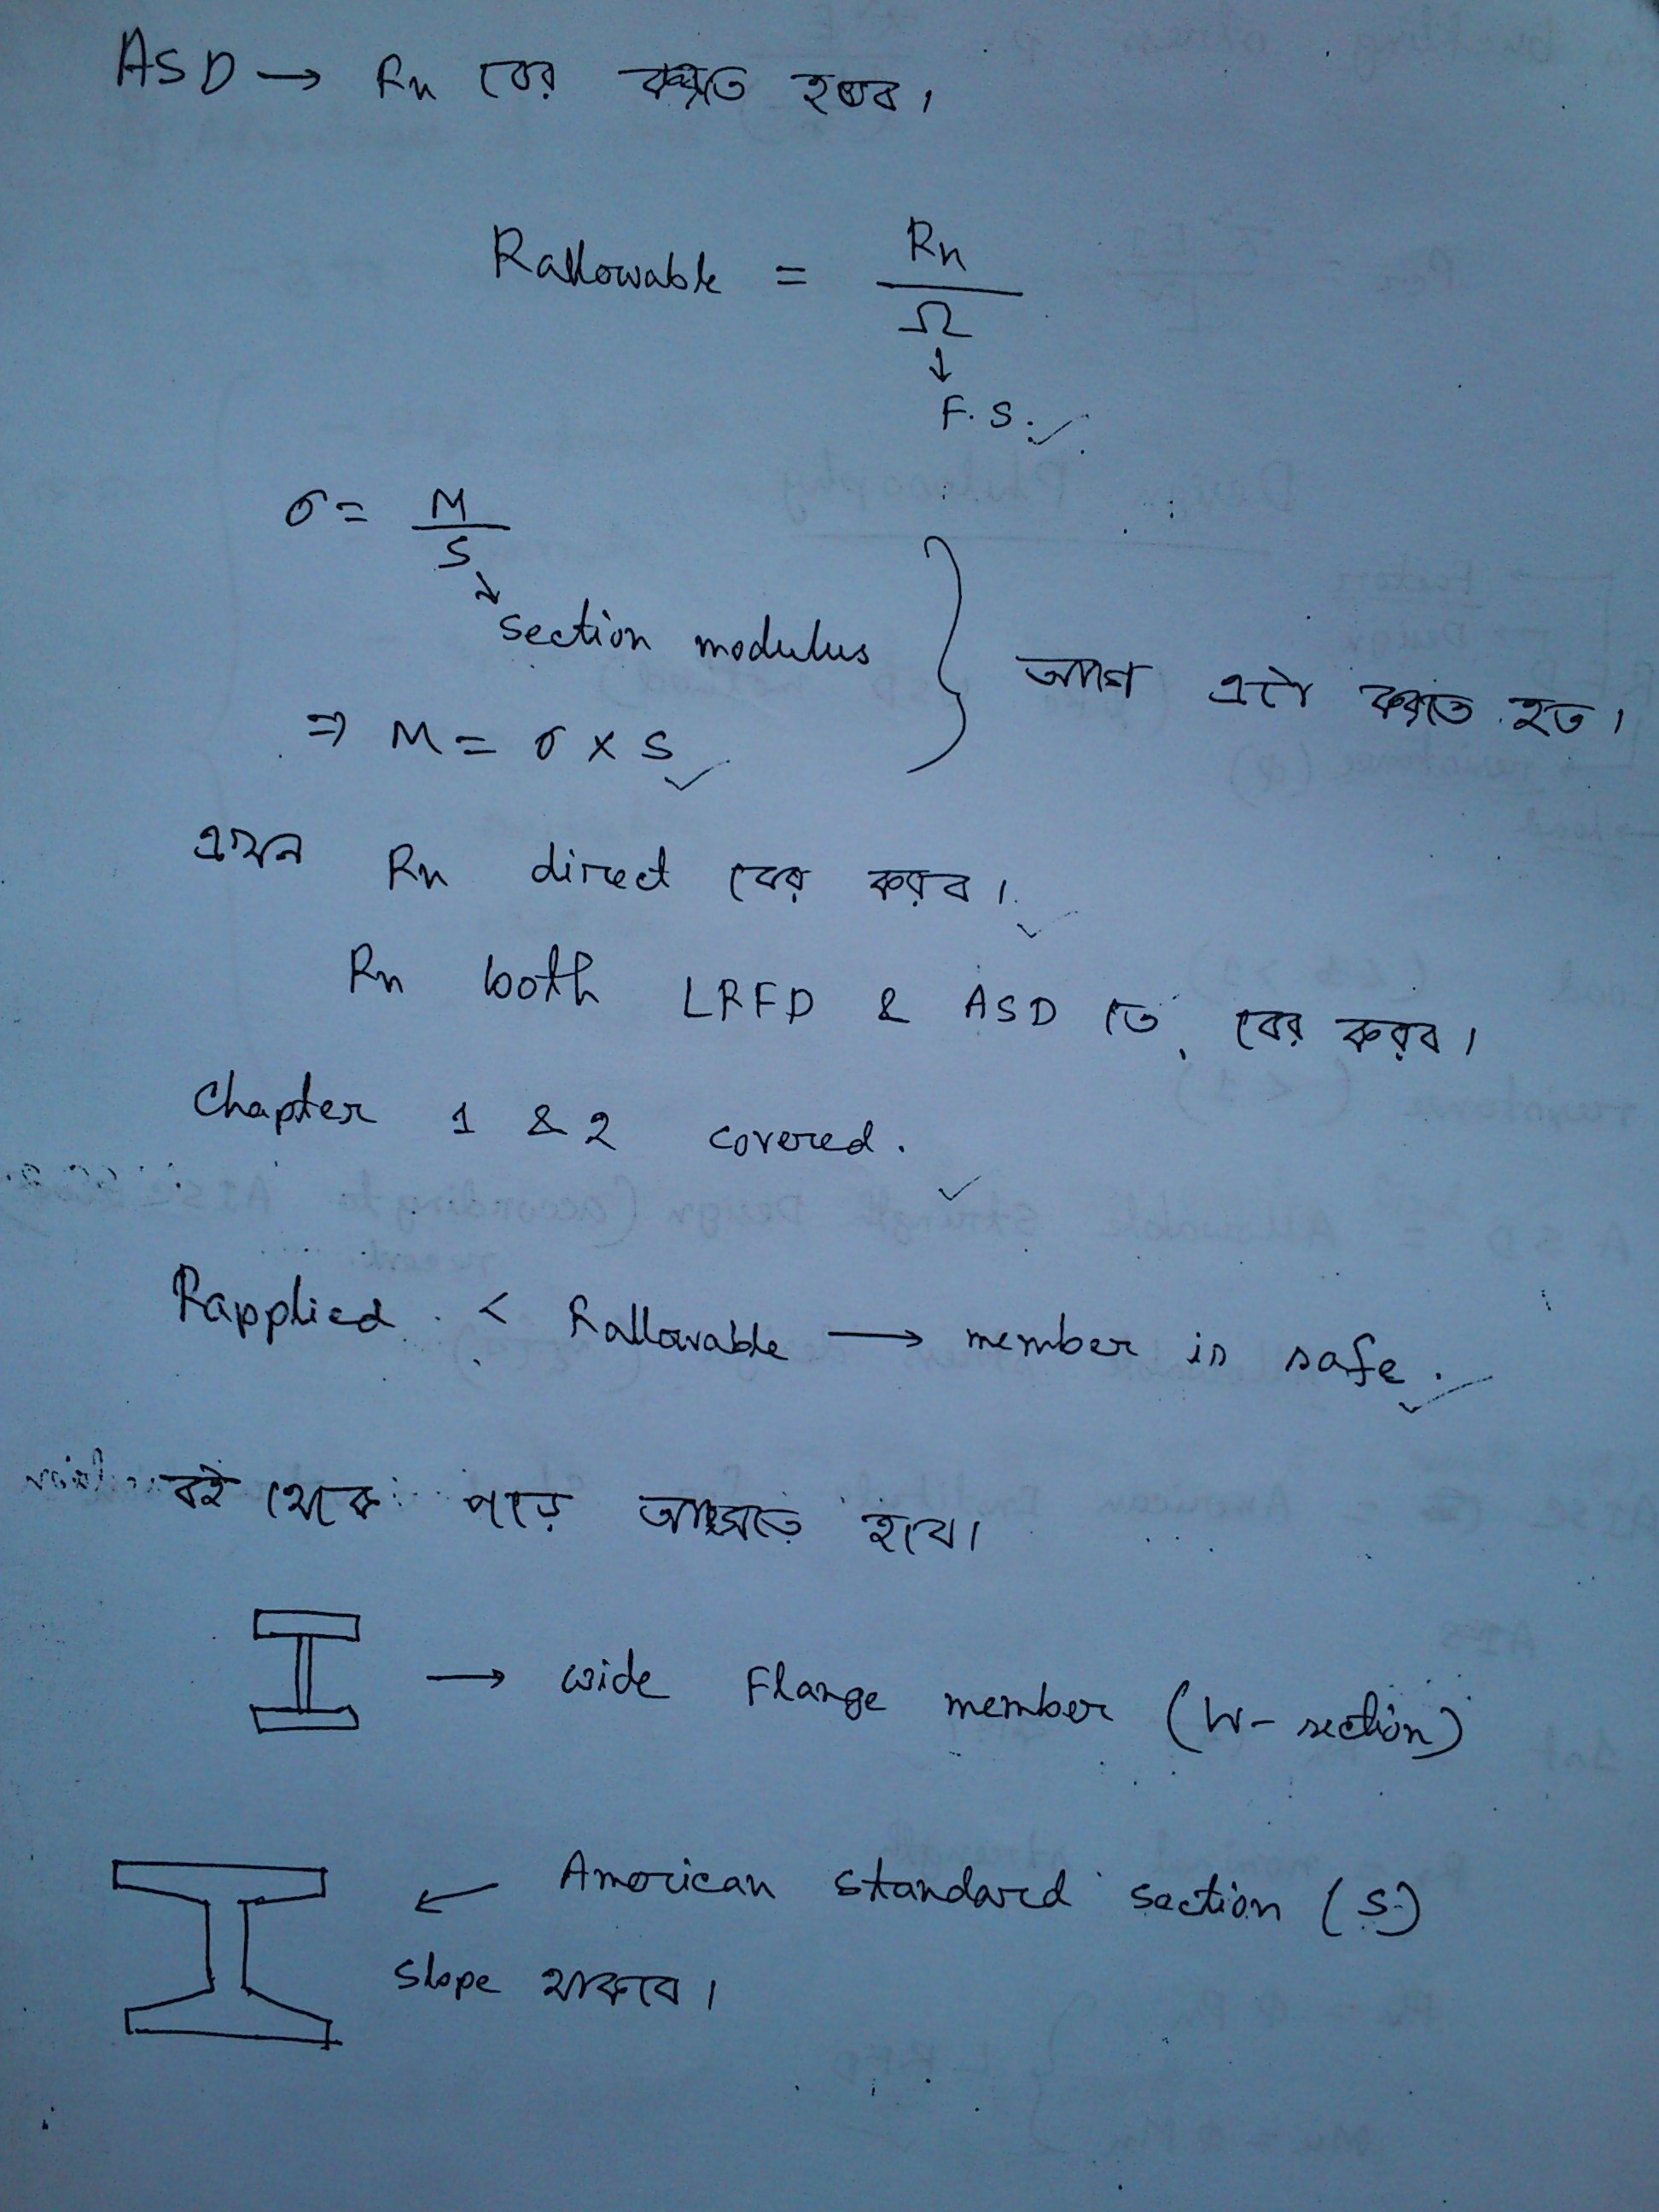 ASD → Rn বের করতে হবে।
Rallowable = Rn / Ω
↓
F.S. ✓
σ = M / S
↘ section modulus
আগে এটা করতে হত।
⇒ M = σ × S ✓
এখন Rn direct বের করব। ✓
Rn both LRFD & ASD তে বের করব।
Chapter 1 & 2 covered. ✓
Rapplied < Rallowable → member is safe. ✓
বই থেকে পড়ে আসতে হবে।
→ wide Flange member (W-section)
← American standard section (S)
slope থাকবে।